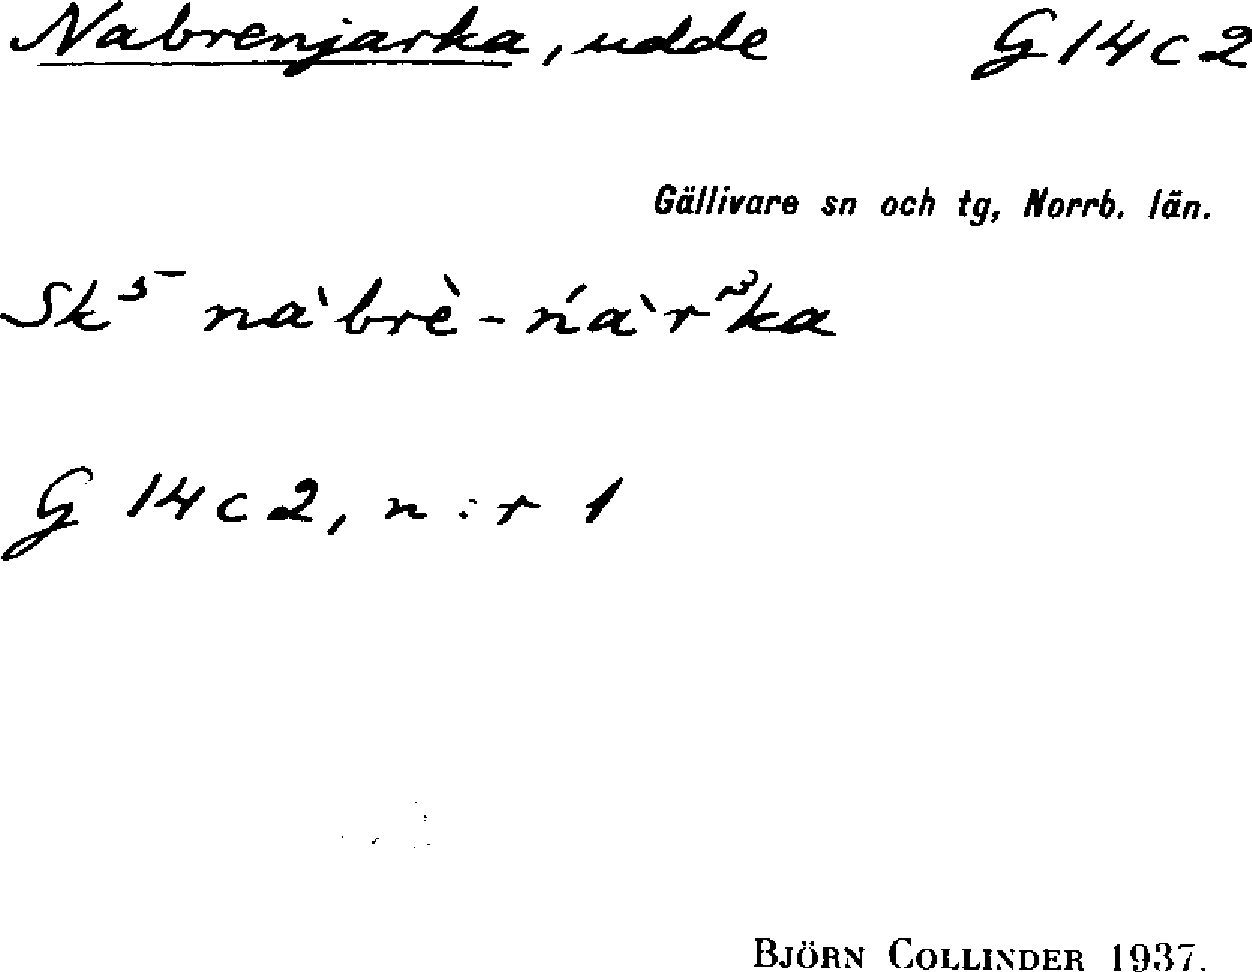 Nabrenjarka, udde G14c2
Gällivare sn och tg, Norrb. län.
Sk⁵⁻ nàˋbrè-ńàˋr˜³ka
G 14c2, n:r 1
BJÖRN COLLINDER 1937.